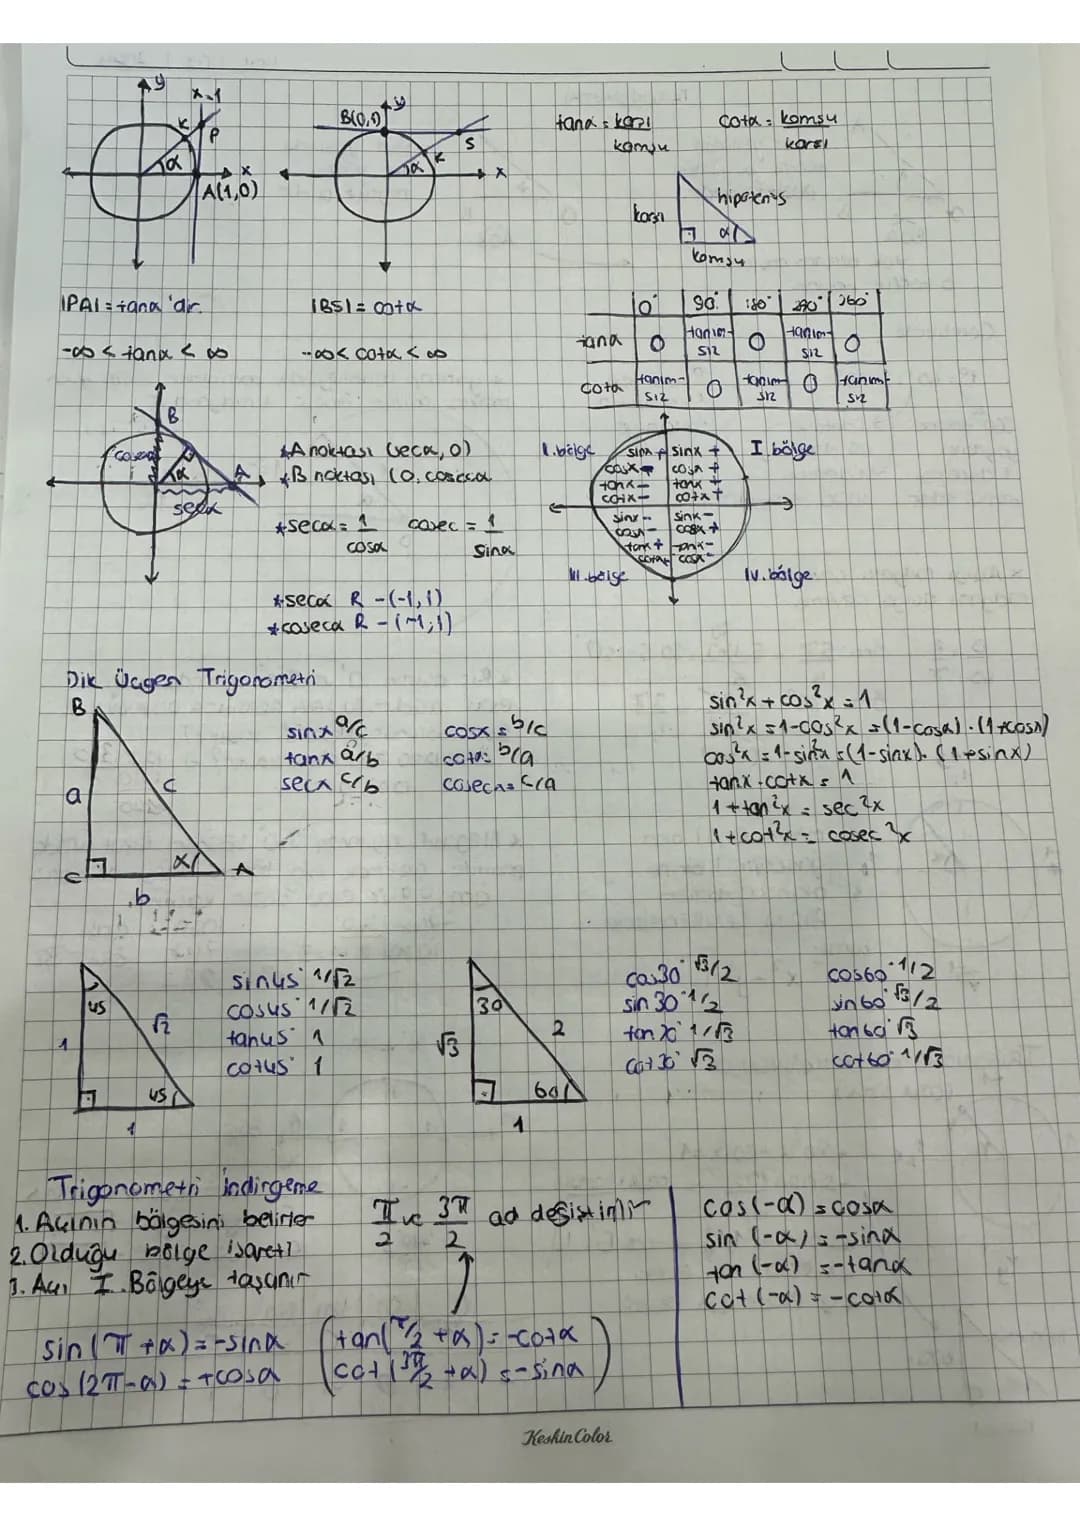 y
x=1
K
P
α
x
A(1,0)
B(0,1)
y
S
K
α
x
tanα = karşı/komşu
cotα = komşu/karşı
karşı
hipotenüs
α
komşu
|PA| = tanα 'dır.
|BS| = cotα
-∞ < tanα < ∞
-∞ < cotα < ∞
0° 90° 180° 270° 360°
tanα 0 tanım-sız 0 tanım-sız 0
cotα tanım-sız 0 tanım-sız 0 tanım-sız
B
cosecα
1
α
A
secα
*A noktası (secα, 0)
*B noktası (0, cosecα
*secα = 1/cosα cosec = 1/sinα
*secα R -(-1,1)
*coseca R -(-1,1)
I.bölge
sinx +
cosx -
tanx -
cotx -
sinx +
cosx +
tanx +
cotx +
I bölge
sinx -
cosx -
tanx +
cotx +
sinx -
cosx +
tanx -
cotx -
III.bölge
IV.bölge
Dik Üçgen Trigonometri
B
a
c
C
x
A
b
sinx a/c cosx = b/c
tanx a/b cotx = b/a
secx c/b cosecx = c/a
sin²x + cos²x = 1
sin²x = 1-cos²x = (1-cosx).(1+cosx)
cos²x = 1-sin²x = (1-sinx).(1+sinx)
tanx.cotx = 1
1+tan²x = sec²x
1+cot²x = cosec²x
45
1
√2
45
1
sin45° 1/√2
cos45° 1/√2
tan45° 1
cot45° 1
30
√3
2
60
1
cos30° √3/2
sin30° 1/2
tan30° 1/√3
cot30° √3
cos60° 1/2
sin60° √3/2
tan60° √3
cot60° 1/√3
Trigonometri indirgeme
1. Açının bölgesini belirler
2. Olduğu bölge işareti
3. Açı I. Bölgeye taşınır
π/2 ve 3π/2 ad değiştirilir
sin(π+α) = -sinα
cos(2π-α) = +cosα
(tan(π/2 +α) = -cotα
cot(3π/2 +α) = -sinα)
cos(-α) = cosα
sin(-α) = -sinα
tan(-α) = -tanα
cot(-α) = -cotα
KeskinColor